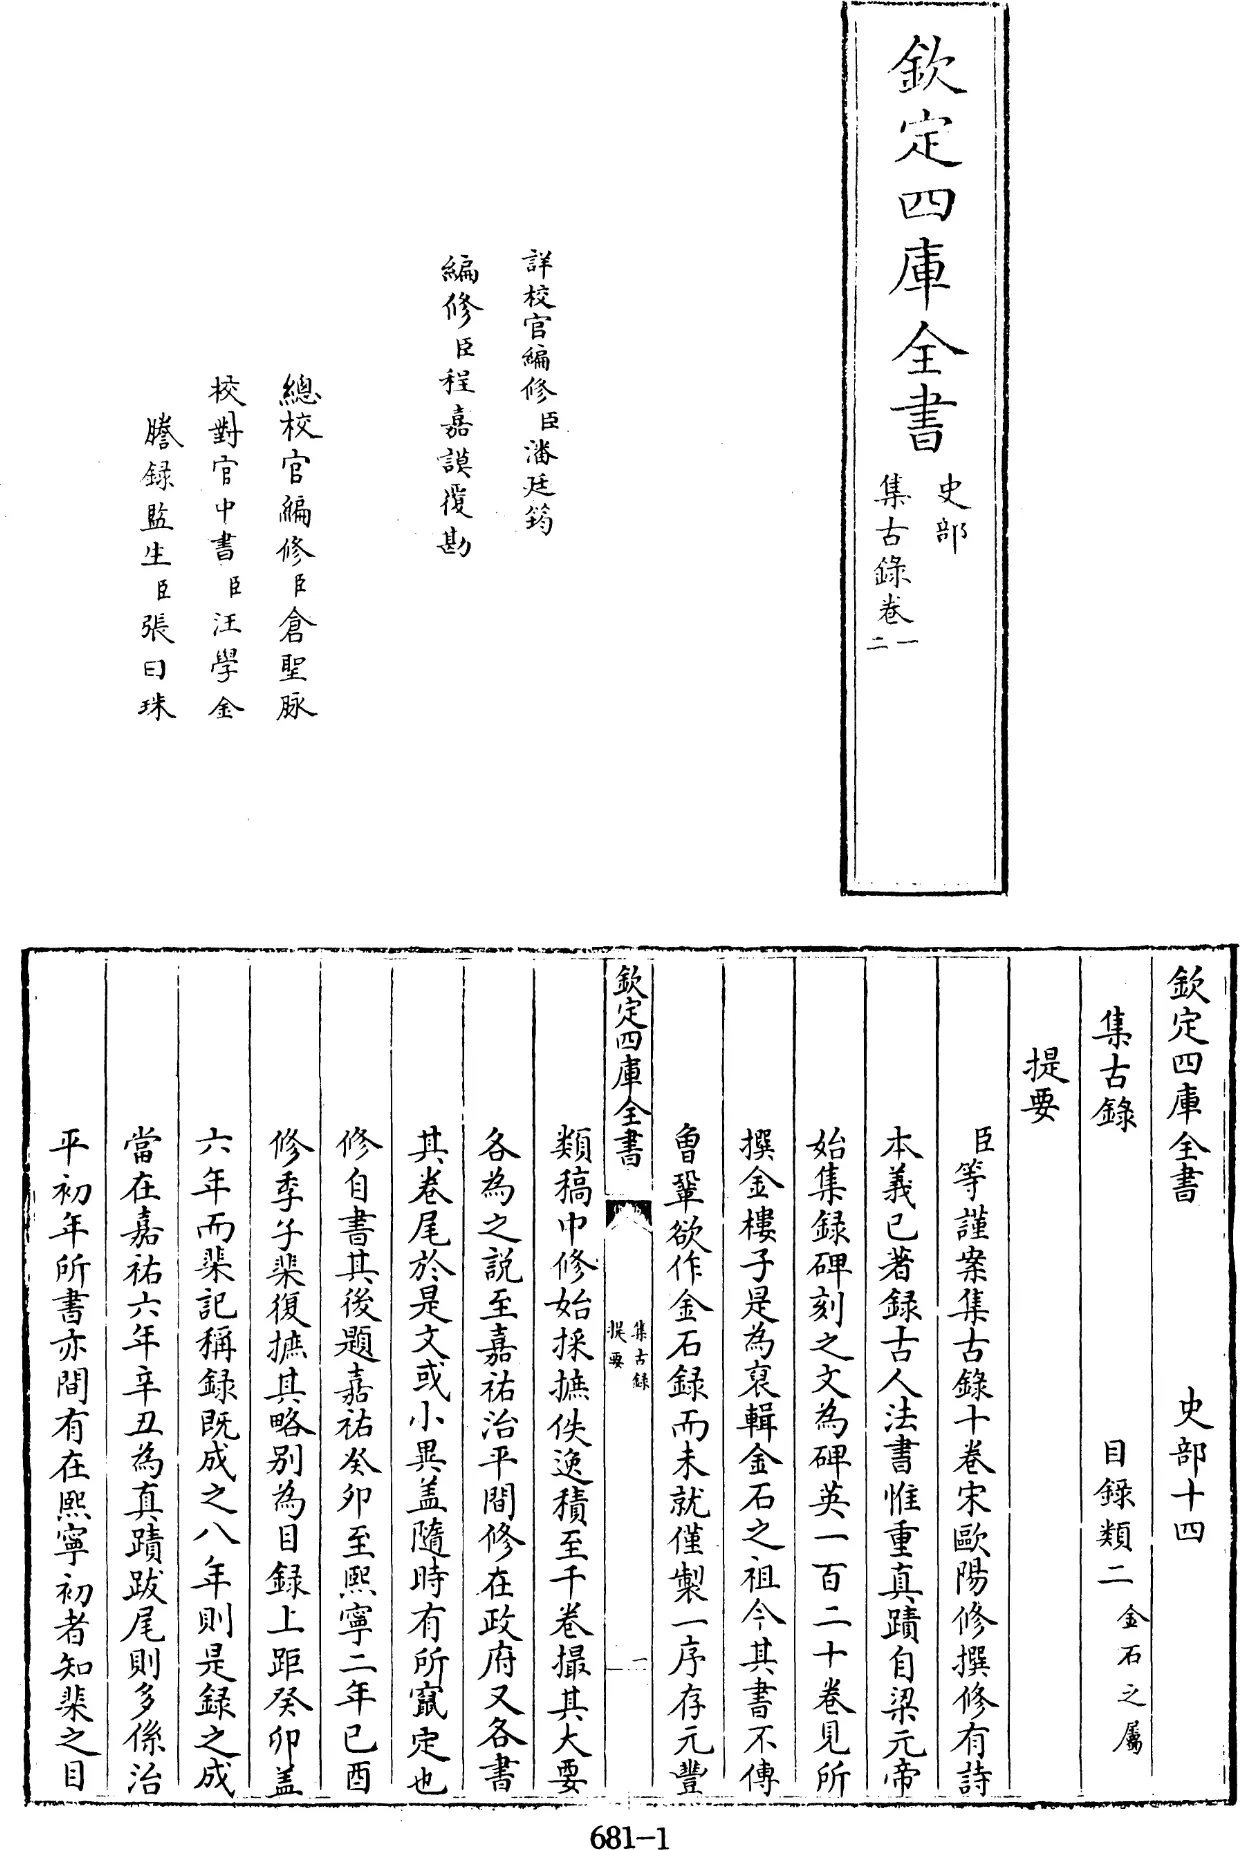 欽定四庫全書
史部
集古錄卷一
二
詳校官編修臣潘廷筠
編修臣程嘉謨覆勘
總校官編修臣倉聖脉
校對官中書臣汪學金
謄録監生臣張曰珠
欽定四庫全書 史部十四
集古錄 目錄類二金石之屬
提要
臣等謹案集古錄十卷宋歐陽修撰修有詩
本義已著録古人法書惟重真蹟自梁元帝
始集録碑刻之文為碑英一百二十卷見所
撰金樓子是為裒輯金石之祖今其書不傳
曾鞏欲作金石録而未就僅製一序存元豐
欽定四庫全書
集古録
提要
一
類稿中修始採摭佚逸積至千卷撮其大要
各為之說至嘉祐治平間修在政府又各書
其卷尾於是文或小異盖隨時有所竄定也
修自書其後題嘉祐癸卯至熙寧二年己酉
修季子棐復摭其略别為目録上距癸卯盖
六年而棐記稱録既成之八年則是録之成
當在嘉祐六年辛丑為真蹟跋尾則多係治
平初年所書亦間有在熙寧初者知棐之目
681-1